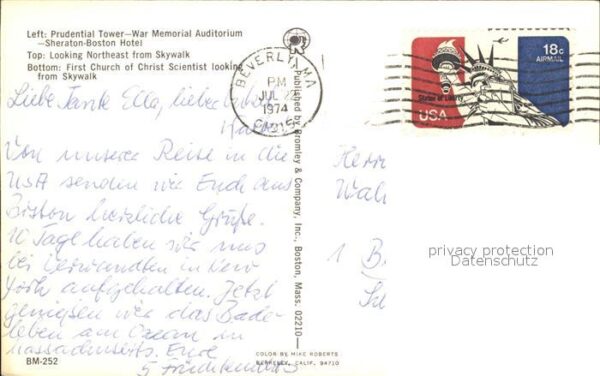 Left: Prudential Tower—War Memorial Auditorium
—Sheraton-Boston Hotel
Top: Looking Northeast from Skywalk
Bottom: First Church of Christ Scientist looking
from Skywalk
Liebe Tante Ella, lieber
Von unserer Reise in die
USA senden wir Euch aus
Boston herzliche Grüße.
10 Tage haben wir uns
bei Verwandten in New
York aufgehalten. Jetzt
genießen wir das Bade-
leben am Ozean in
Massachusetts. Eure
BM-252
Published by Bromley & Company, Inc., Boston, Mass. 02210
COLOR BY MIKE ROBERTS
BERKELEY, CALIF. 94710
BEVERLY, MA
PM
JUL
1974
01915
Statue of Liberty
USA
18c
AIRMAIL
Herrn
1 B
privacy protection
Datenschutz